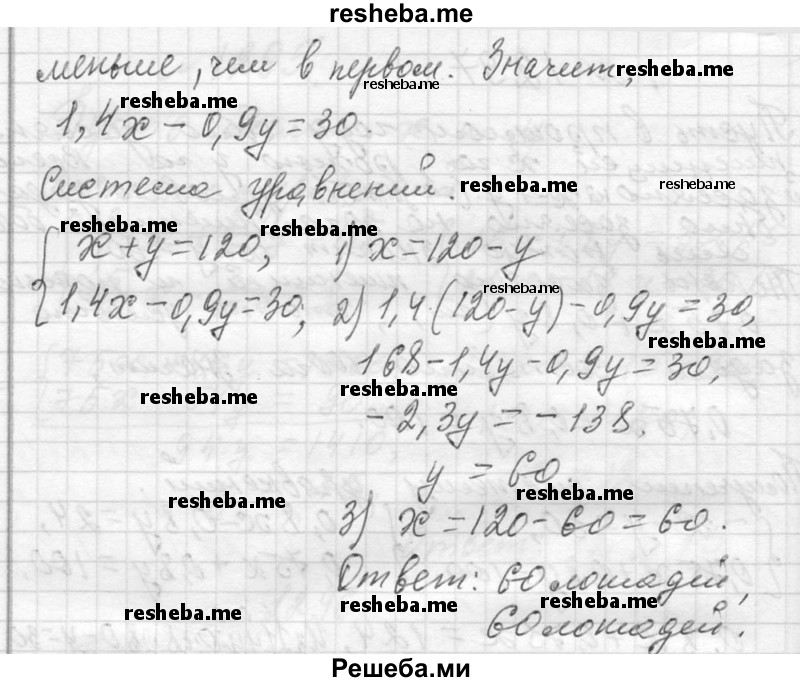 resheba.me
меньше, чем в первом. Значит,
resheba.me
resheba.me
resheba.me
1,4x - 0,9y = 30.
Система уравнений.
resheba.me
resheba.me
resheba.me
resheba.me
{ x + y = 120, 1) x = 120 - y
resheba.me
1,4x - 0,9y = 30, 2) 1,4(120 - y) - 0,9y = 30,
resheba.me
168 - 1,4y - 0,9y = 30,
resheba.me
resheba.me
- 2,3y = - 138.
y = 60.
resheba.me
resheba.me
3) x = 120 - 60 = 60.
Ответ: 60 лошадей,
resheba.me
resheba.me
resheba.me
60 лошадей.
Решеба.ми